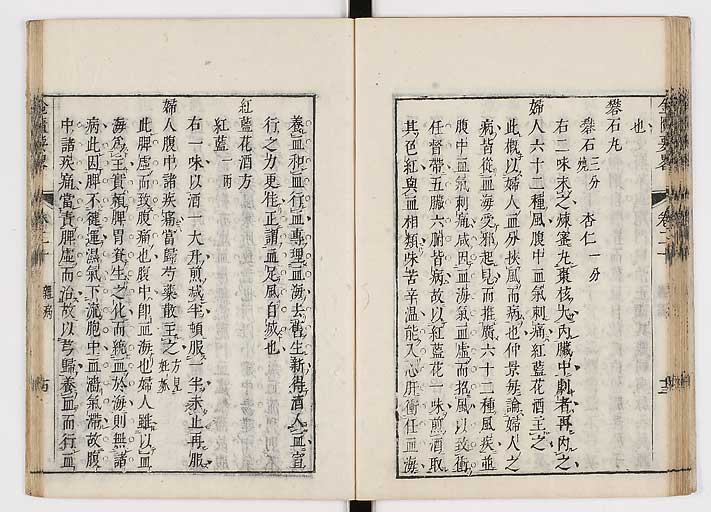 也
礬石丸
礬石 三分燒 杏仁 一分
右二味末之煉蜜丸棗核大內臟中劇者再內之
婦人六十二種風腹中血氣刺痛紅藍花酒主之
此槪以婦人血分挾風而病也仲景每論婦人之
病皆從血海受邪起見而推廣六十二種風疾並
腹中血氣刺痛咸因血海氣血虛而招風以致衝
任督帶五臟六腑皆病故以紅藍花一味煎酒取
其色紅與血相類味苦辛溫能入心肝衝任血海
養血和血行血專理血海去舊生新得酒入血宣
行之力更徃正謂血足風自滅也
紅藍花酒方
紅藍 一兩
右一味以酒一大升煎減半頓服一半未止再服
婦人腹中諸疾痛當歸芍藥散主之 方見妊娠
此脾虛而致腹痛也腹中卽血海也婦人雖以血
海爲主實賴脾胃養生之化而統血於海則無諸
病此因脾不健運濕氣下流胞中血濇氣帶故腹
中諸疾痛當責脾虛而治故以芎歸養血而行血
金匱要畧
卷二十
雜病